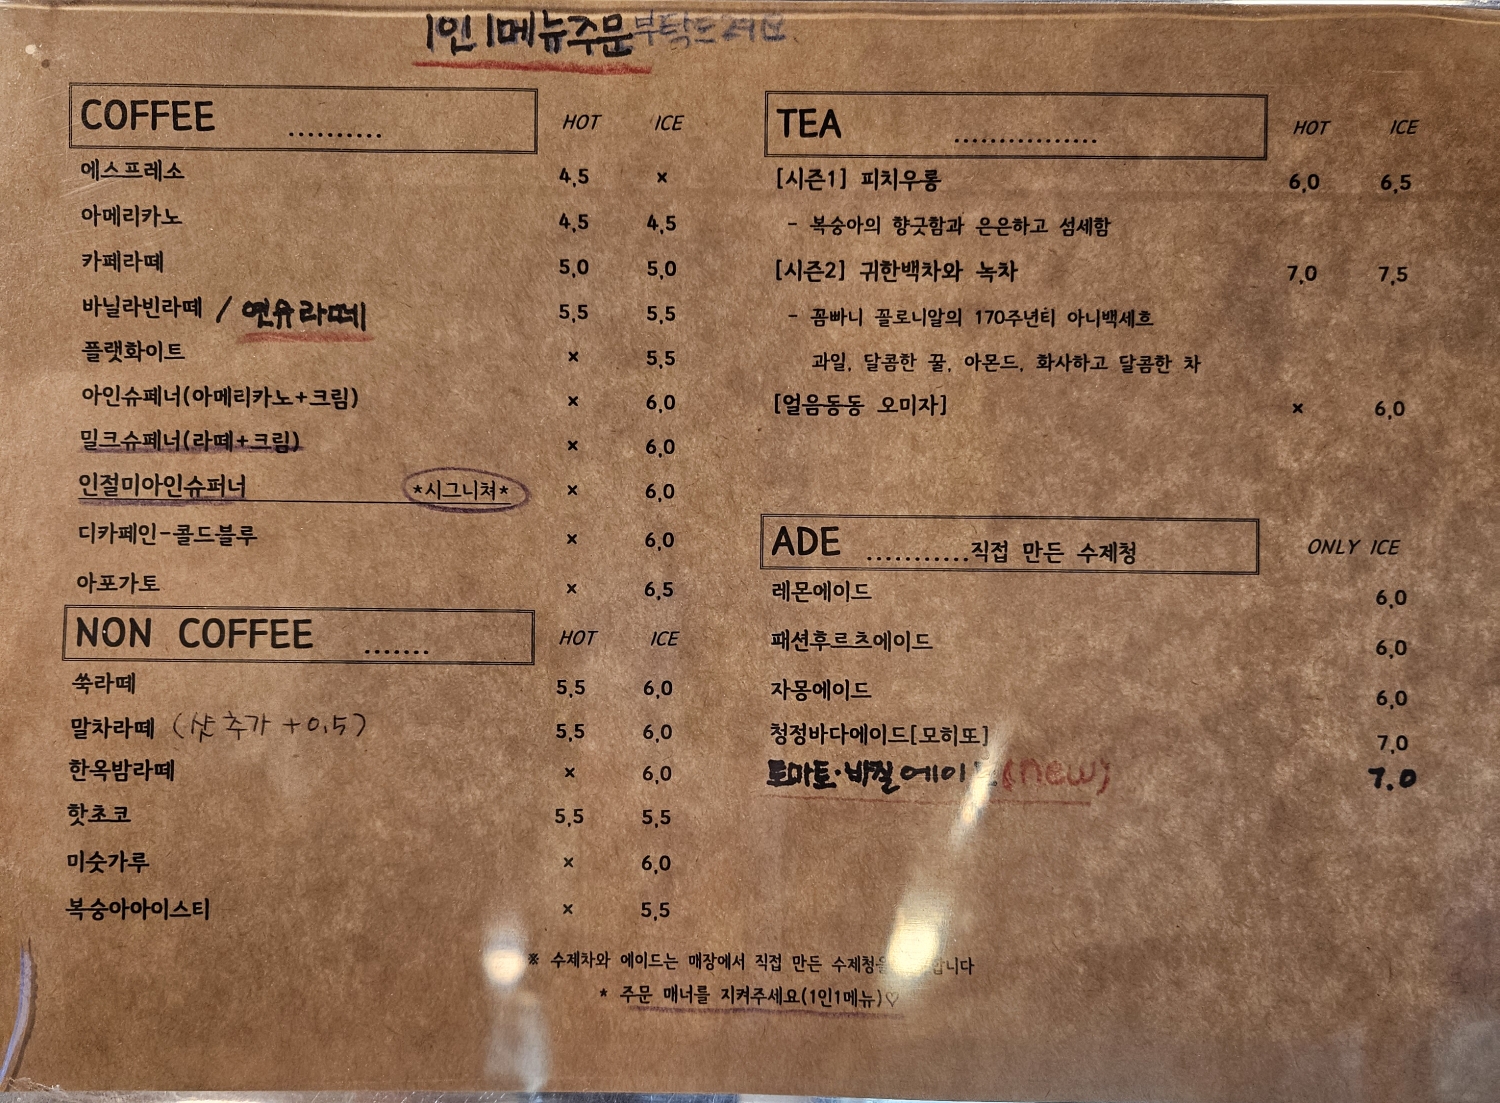 1인 1메뉴주문부탁드려요.
COFFEE .......... HOT ICE
에스프레소 4,5 ×
아메리카노 4,5 4,5
카페라떼 5,0 5,0
바닐라빈라떼 / 연유라떼 5,5 5,5
플랫화이트 × 5,5
아인슈페너(아메리카노+크림) × 6,0
밀크슈페너(라떼+크림) × 6,0
인절미아인슈퍼너 *시그니쳐* × 6,0
디카페인-콜드블루 × 6,0
아포가토 × 6,5
NON COFFEE ....... HOT ICE
쑥라떼 5,5 6,0
말차라떼 (샷 추가 +0.5) 5,5 6,0
한옥밤라떼 × 6,0
핫초코 5,5 5,5
미숫가루 × 6,0
복숭아아이스티 × 5,5
TEA ................ HOT ICE
[시즌1] 피치우롱 6,0 6,5
- 복숭아의 향긋함과 은은하고 섬세함
[시즌2] 귀한백차와 녹차 7,0 7,5
- 꼼빠니 꼴로니알의 170주년티 아니백세흐
과일, 달콤한 꿀, 아몬드, 화사하고 달콤한 차
[얼음동동 오미자] × 6,0
ADE ...........직접 만든 수제청 ONLY ICE
레몬에이드 6,0
패션후르츠에이드 6,0
자몽에이드 6,0
청정바다에이드[모히또] 7,0
토마토·바질에이드(new) 7.0
※ 수제차와 에이드는 매장에서 직접 만든 수제청을
* 주문 매너를 지켜주세요(1인1메뉴)♡